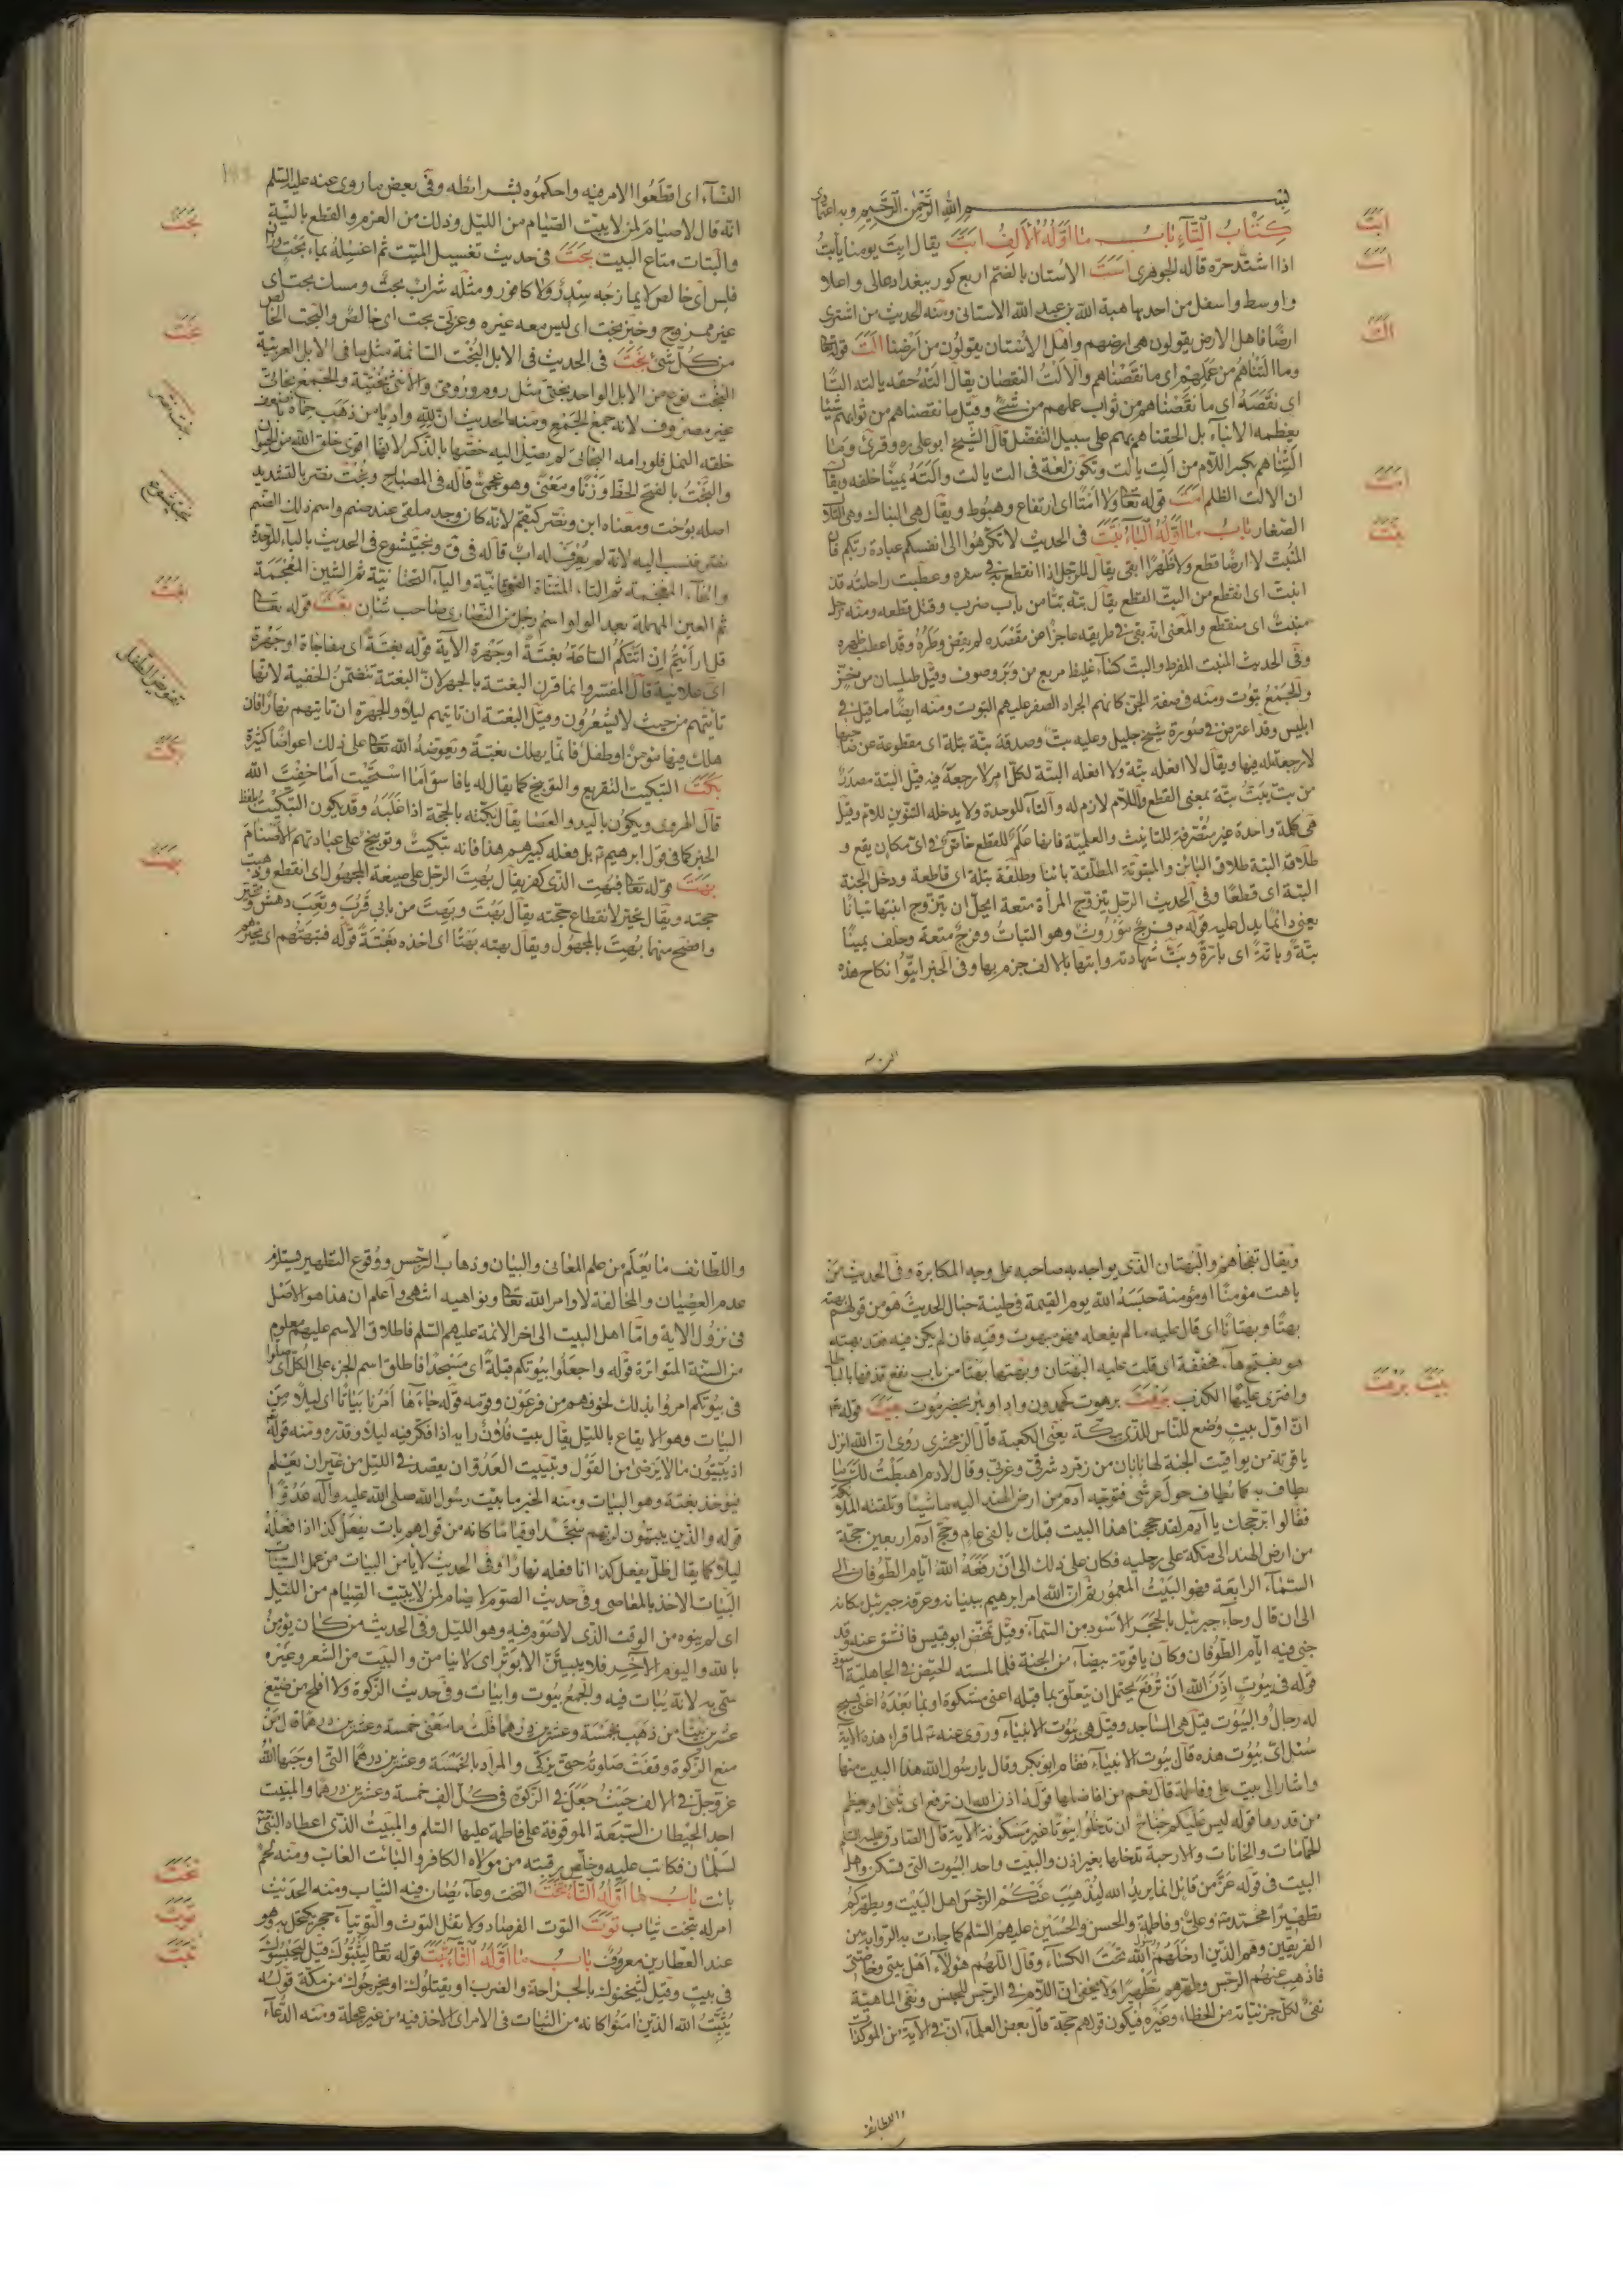 بسم الله الرحمن الرحيم وبه اعتمادي
كتاب التاء باب ما اوله الالف ابت يقال ابت يومنا يأبت
اذا اشتد حره قاله الجوهري است الاستان بالضم اربع كور ببغداد عالى واعلا
واوسط واسفل من احدها هبة الله بن عبد الله الاستانى ومنه الحديث من اشترى
ارضا فاهل الارض يقولون هى ارضهم واهل الاستان يقولون من ارضنا الت قوله تعا
وما التناهم من عملهم اى ما نقصناهم والالت النقصان يقال الته حقه يالته التا
اى نقصه اى ما نقصناهم من ثواب عملهم من شئ وقيل ما نقصناهم من ثوابهم شيئا
يعظمه الابناء بل الحقناهم بهم على سبيل التفضل قال الشيخ ابو على ره وقرئ وما
التناهم بكسر اللام من الت يالت وتكون لغة فى الت يالت والته يمينا حلفه ويقال
ان الالت الظلم امت قوله تعا ولا امتا اى ارتفاع وهبوط ويقال هى النباك وهى التلال
الصغار باب ما اوله الباء بتت فى الحديث لا تكرهوا الى انفسكم عبادة ربكم فان
المنبت لا ارضا قطع ولا ظهرا ابقى يقال للرجل اذا انقطع فى سفره وعطبت راحلته قد
انبت اى انقطع من البت القطع يقال بته بتا من باب ضرب وقتل قطعه ومنه رجل
منبت اى منقطع والمعنى انه بقى فى طريقه عاجزا عن مقصده لم يقض وطره وقد اعطب ظهره
وفى الحديث المنبت المفرط والبت كساء غليظ مربع من وبر وصوف وقيل طيلسان من خز
والجمع بتوت ومنه فى صفة الجن كانهم الجراد الصفر عليهم البتوت ومنه ايضا ما قيل فى
ابليس وقد اعترض فى صورة شيخ جليل وعليه بت وصدقة بتة بتلة اى مقطوعة عن صاحبها
لا رجعة له فيها ويقال لا افعله بتة ولا افعله البتة لكل امر لا رجعة فيه قيل البتة مصدر
من بت يبت بتة بمعنى القطع واللام لازم له والتاء للوحدة ولا يدخله التنوين للام وقيل
هى كلمة واحدة غير منصرفة للتانيث والعلمية فانها علم للقطع خاص فى اى مكان يقع و
طلاق البتة طلاق البائن والمبتوتة المطلقة بائنا وطلقة بتلة اى قاطعة ودخل الجنة
البتة اى قطعا وفى الحديث الرجل يتزوج المرأة متعة ايحل ان يتزوج ابنتها بتاتا
يعنى دائما يدل عليه قوله فرج موروث وهو البتات وفرج متعة وحلف يمينا
بتة وباتة اى بارة وبت شهادته وابتها بالالف جزم بها وفى الخبر ابتوا نكاح هذه
النساء اى اقطعوا الامر فيه واحكموه بشرائطه وفى بعض ما روى عنه عليه السلم
انه قال لا صيام لمن لا يبت الصيام من الليل وذلك من العزم والقطع بالنية
والبتات متاع البيت بحت فى حديث تغسيل الميت ثم اغسله بماء بحت
اى خالص لا يمازجه سدر ولا كافور ومثله شراب بحت ومسك بحت اى
غير ممزوج وخبز بحت اى ليس معه غيره وعربى بحت اى خالص والبحت الخالص
من كل شئ بخت فى الحديث فى الابل البخت السائمة مثل ما فى الابل العربية
البخت نوع من الابل الواحد بختى مثل روم ورومى والانثى بختية والجمع بخاتى
غير مصروف لانه جمع الجمع ومنه الحديث ان لله واديا من ذهب حماه باضعف
خلقه النمل فلو رامه البخاتى لم يصل اليه خصها بالذكر لانها اقوى خلق الله من الحيوان
والبخت بالفتح الحظ وزنا ومعنى وهو عجمى قاله فى المصباح وبخت نصر بالتشديد
اصله بوخت ومعناه ابن ونصر كبقم لانه كان وجد ملقى عند صنم واسم ذلك الصنم
نصر فنسب اليه لانه لم يعرف له اب قاله فى ق وبختيشوع فى الحديث بالباء الموحدة
والخاء المعجمة ثم التاء المثناة الفوقانية والياء التحتانية ثم الشين المعجمة
ثم العين المهملة بعد الواو اسم رجل من النصارى صاحب شان بغت قوله تعا
قل ارأيتم ان اتتكم الساعة بغتة او جهرة الآية قوله بغتة اى مفاجاة او جهرة
اى علانية قال المفسر وانما قرن البغتة بالجهر لان البغتة تتضمن الخفية لانها
تأتيهم من حيث لا يشعرون وقيل البغتة ان تأتيهم ليلا والجهرة ان تاتيهم نهارا فان
هلك فيها مؤمن او طفل فانما يهلك بغتة ويعوضه الله تعا على ذلك اعواضا كثيرة
بكت التبكيت التقريع والتوبيخ كما يقال له يا فاسق اما استحييت اما خفت الله
قال الهروى ويكون باليد والعصا يقال بكته بالحجة اذا غلبه وقد يكون التبكيت بلفظ
الخبر كما فى قول ابرهيم بل فعله كبيرهم هذا فانه تبكيت وتوبيخ على عبادتهم الاصنام
بهت قوله تعا فبهت الذى كفر يقال بهت الرجل على صيغة المجهول اى انقطع وذهبت
حجته ويقال تحير لانقطاع حجته يقال بهت وبهت من بابى قرب وتعب دهش وتحير
وافصح منهما بهت بالمجهول ويقال بهته بهتا اى اخذه بغتة قوله فتبهتهم اى تحيرهم
ابت
است
الت
امت
بتت
بحت
بخت
بخت نصر
بختيشوع
بغت
تعويض الطفل
بكت
بهت
ويقال تفجأهم والبهتان الذى يواجه به صاحبه على وجه المكابرة وفى الحديث من
باهت مؤمنا او مؤمنة حبسه الله يوم القيمة فى طينة خبال الحديث هو من قولهم بهته
بهتا وبهتانا اى قال عليه ما لم يفعله وهو مبهوت وفيه فان لم يكن فيه فقد بهته
هو بفتح هاء مخففة اى قلت عليه البهتان وبهتها بهتا من باب نفع قذفها بالباطل
وافترى عليها الكذب برهت برهوت كحمدون واد او بئر بحضرموت بيت قوله تع
ان اول بيت وضع للناس للذى ببكة يعنى الكعبة قال الزمخشرى روى ان الله انزل
ياقوتة من يواقيت الجنة لها بابان من زمرد شرقى وغربى وقال لادم اهبطت لك ما
يطاف به كما يطاف حول عرشى فتوجه آدم من ارض الهند اليه ماشيا وتلقته الملائكة
فقالوا بر حجك يا آدم لقد حججنا هذا البيت قبلك بالفى عام وحج آدم اربعين حجة
من ارض الهند الى مكة على رجليه فكان على ذلك الى ان رفعه الله ايام الطوفان الى
السماء الرابعة فهو البيت المعمور ثم ان الله امر ابرهيم ببنيانه وعرفه جبرئيل مكانه
الى ان قال وجاء جبرئيل بالحجر الاسود من السماء وقيل تمخض ابو قبيس فانشق عنه وقد
خبى فيه ايام الطوفان وكان ياقوتة بيضاء من الجنة فلما لمسته الحيض فى الجاهلية اسود
قوله فى بيوت اذن الله ان ترفع يحتمل ان يتعلق بما قبله اعنى مشكوة او بما بعده اعنى يسبح
له رجال والبيوت قيل هى المساجد وقيل هى بيوت الانبياء وروى عنه لما قرأ هذه الآية
سئل اى بيوت هذه قال بيوت الانبياء فقام ابو بكر وقال يا رسول الله هذا البيت منها
واشار الى بيت على وفاطمة قال نعم من افاضلها قوله اذن الله ان ترفع اى تبنى او يعظم
من قدرها قوله ليس عليكم جناح ان تدخلوا بيوتا غير مسكونة الآية قال الصادق عليه السلم
الحمامات والخانات والارحية تدخلها بغير اذن والبيت واحد البيوت التى تسكن واهل
البيت فى قوله عز من قائل انما يريد الله ليذهب عنكم الرجس اهل البيت ويطهركم
تطهيرا محمد وعلى وفاطمة والحسن والحسين عليهم السلم كما جاءت به الرواية من
الفريقين وهم الذين ادخلهم رسول الله تحت الكساء وقال اللهم هؤلاء اهل بيتى وخاصتى
فاذهب عنهم الرجس وطهرهم تطهيرا ولا يخفى ان اللام فى الرجس للجنس ونفى الماهية
نفى لكل جزئياته من الخطاء وغيره فيكون قولهم حجة قال بعض العلماء ان فى الآية من المؤكدات
واللطائف
واللطائف ما يعلم من علم المعانى والبيان وذهاب الرجس ووقوع التطهير يستلزم
عدم العصيان والمخالفة لاوامر الله تعا ونواهيه انتهى واعلم ان هذا هو الاصل
فى نزول الاية واما اهل البيت الى اخر الائمة عليهم السلم فاطلاق الاسم عليهم معلوم
من السنة المتواترة قوله واجعلوا بيوتكم قبلة اى مسجدا فاطلق اسم الجزء على الكل اى صلوا
فى بيوتكم امروا بذلك لخوفهم من فرعون وقومه قوله جاءها امرنا بياتا اى ليلا من
البيات وهو الايقاع بالليل يقال بيت فلان رايه اذا فكر فيه ليلا وقدره ومنه قوله
اذ يبيتون ما لا يرضى من القول وتبييت العدو ان يقصد فى الليل من غير ان يعلم
فيؤخذ بغتة وهو البيات ومنه الخبر ما بيت رسول الله صلى الله عليه وآله عدوا
قوله والذين يبيتون لربهم سجدا وقياما كانه من قولهم بات يفعل كذا اذا فعله
ليلا كما يقال ظل يفعل كذا اذا فعله نهارا وفى الحديث لا يأمن البيات من عمل السيئات
البيات الاخذ بالمعاصى وفى حديث الصوم لا صيام لمن لا يبيت الصيام من الليل
اى لم ينوه من الوقت الذى لا صوم فيه وهو الليل وفى الحديث من كان يؤمن
بالله واليوم الآخر فلا يبيتن الا بوتر اى لا ينامن والبيت من الشعر وغيره
سمى به لانه يبات فيه والجمع بيوت وابيات وفى حديث الزكوة ولا افلح من ضيع
عشرين بيتا من ذهب بخمسة وعشرين درهما قلت ما معنى خمسة وعشرين درهما قال من
منع الزكوة وقفت صلوته حتى يزكى والمراد بالخمسة وعشرين درهما التى اوجبها الله
عز وجل فى الالف حيث جعل فى الزكوة فى كل الف خمسة وعشرين درهما والمبيت
احد الحيطان السبعة الموقوفة على فاطمة عليها السلم والمبيت الذى اعطاه النبى
لسلمان فكاتب عليه وخلص رقبته من مولاه الكافر والبائت الغاب ومنه لحم
بائت باب ما اوله التاء تخت التخت وعاء يصان فيه الثياب ومنه الحديث
امر له بتخت ثياب توت التوت الفرصاد ولا تقل التوث والتوتياء حجر يكتحل به وهو
عند العطارين معروف باب ما اوله الثاء ثبت قوله تعا ليثبتوك قيل ليحبسوك
فى بيت وقيل ليثخنوك بالجراحة والضرب او يقتلوك او يخرجوك من مكة قوله
يثبت الله الذين آمنوا كانه من الثبات فى الامر اى الاخذ فيه من غير عجلة ومنه الدعاء
بيت برهت
تخت
توت
ثبت